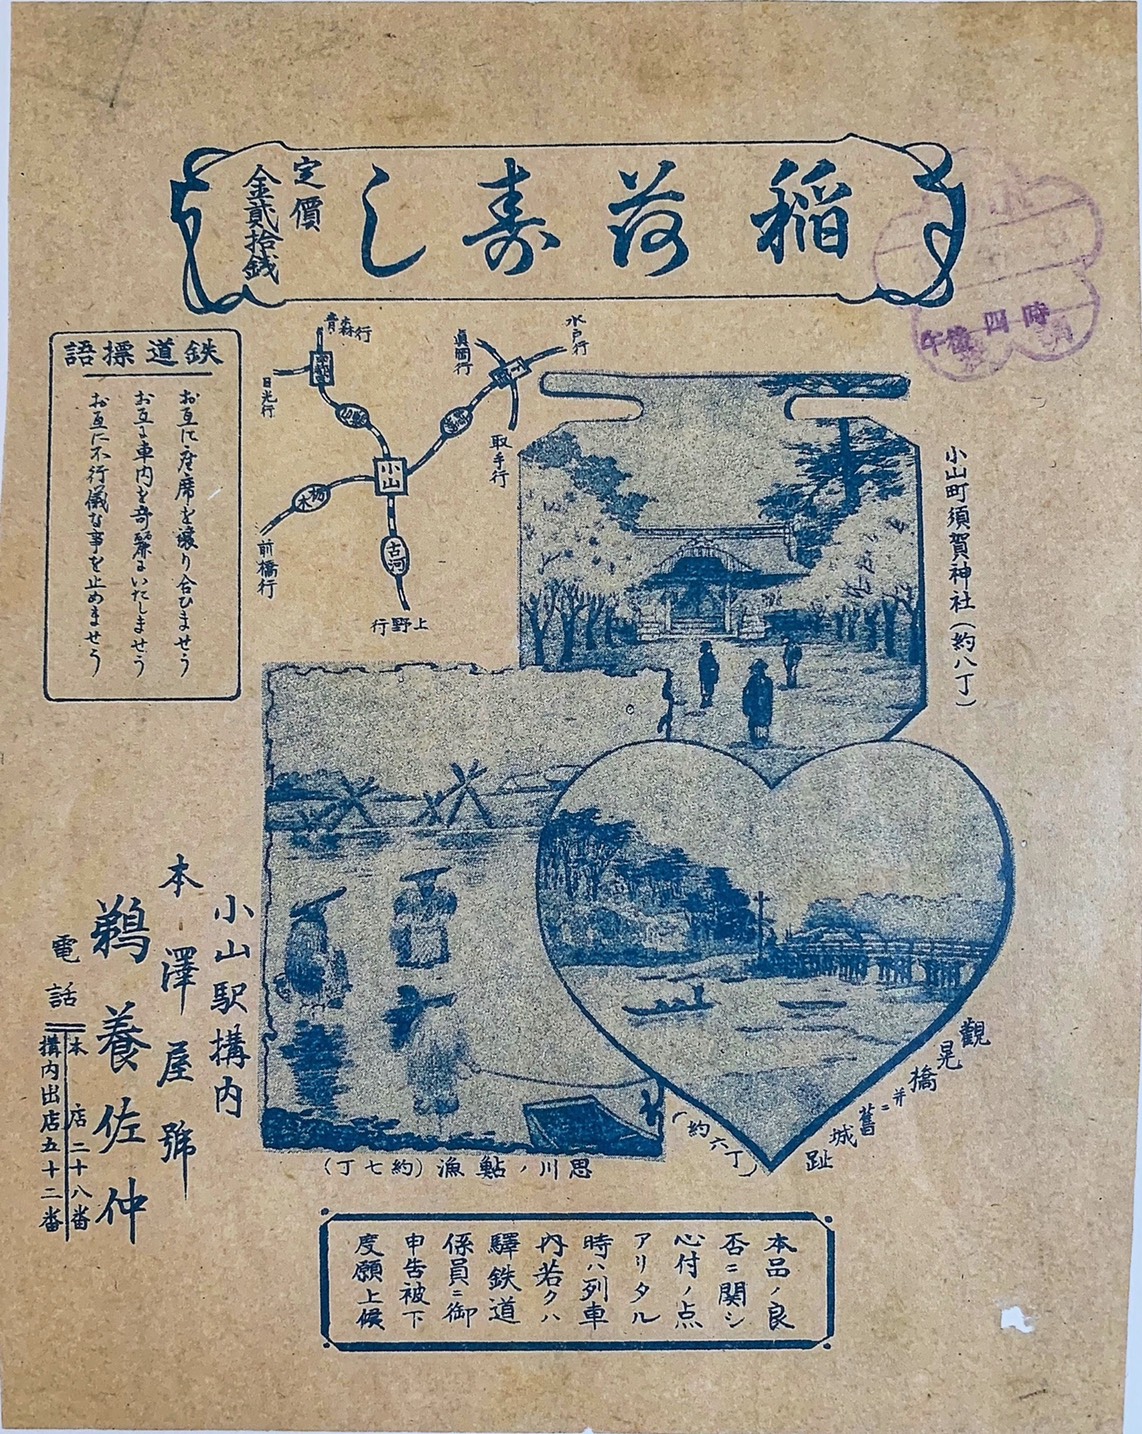 稲荷寿し
定價
金貳拾銭
午後四時
鉄道標語
お互に座席を譲り合ひませう
お互に車内を奇麗にいたしませう
お互に不行儀な事を止めませう
青森行
日光行
水戸行
眞岡行
取手行
小山
栃木
前橋行
古河
上野行
小山町須賀神社(約八丁)
觀晃橋並ニ舊城趾
(約六丁)
思川ノ鮎漁(約七丁)
小山駅構内
本澤屋號
鵜養佐仲
電話
本店二十八番
構内出店五十二番
本品ノ良
否ニ関シ
心付ノ点
アリタル
時ハ列車
内若クハ
驛鉄道
係員ニ御
申告被下
度願上候